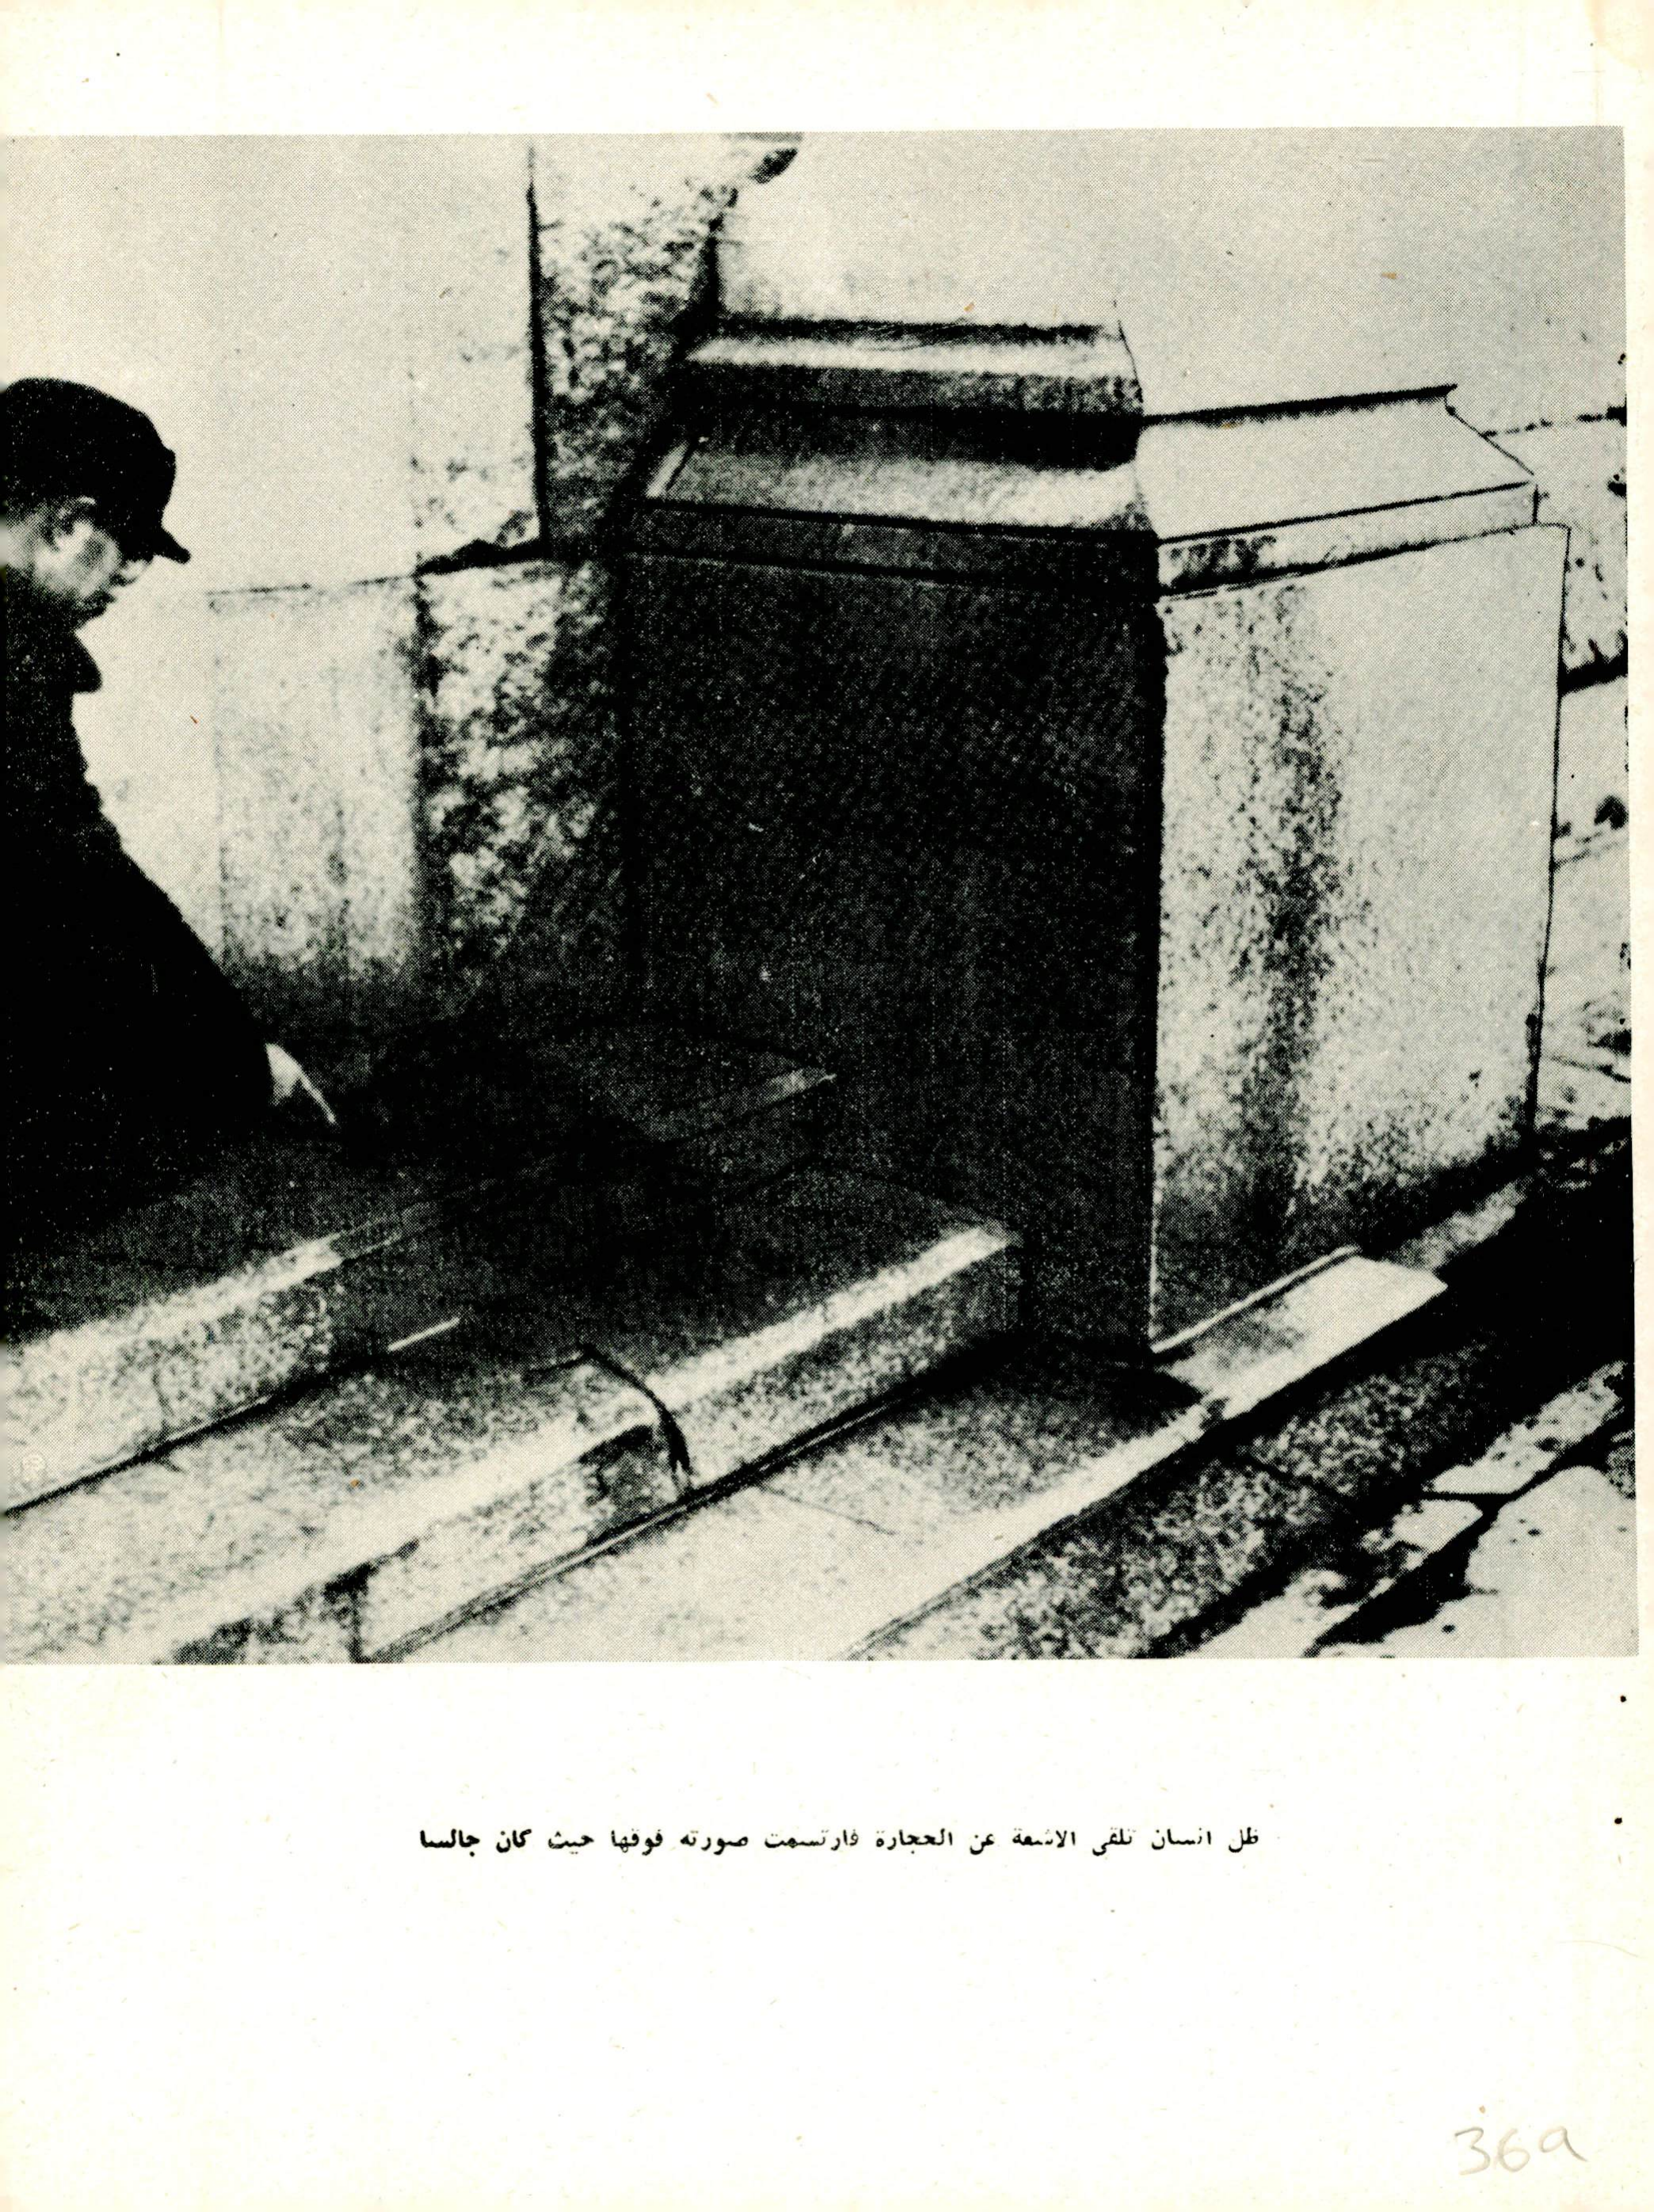 ظل انسان تلقى الاشعة عن الحجارة فارتسمت صورته فوقها حيث كان جالسا
36a